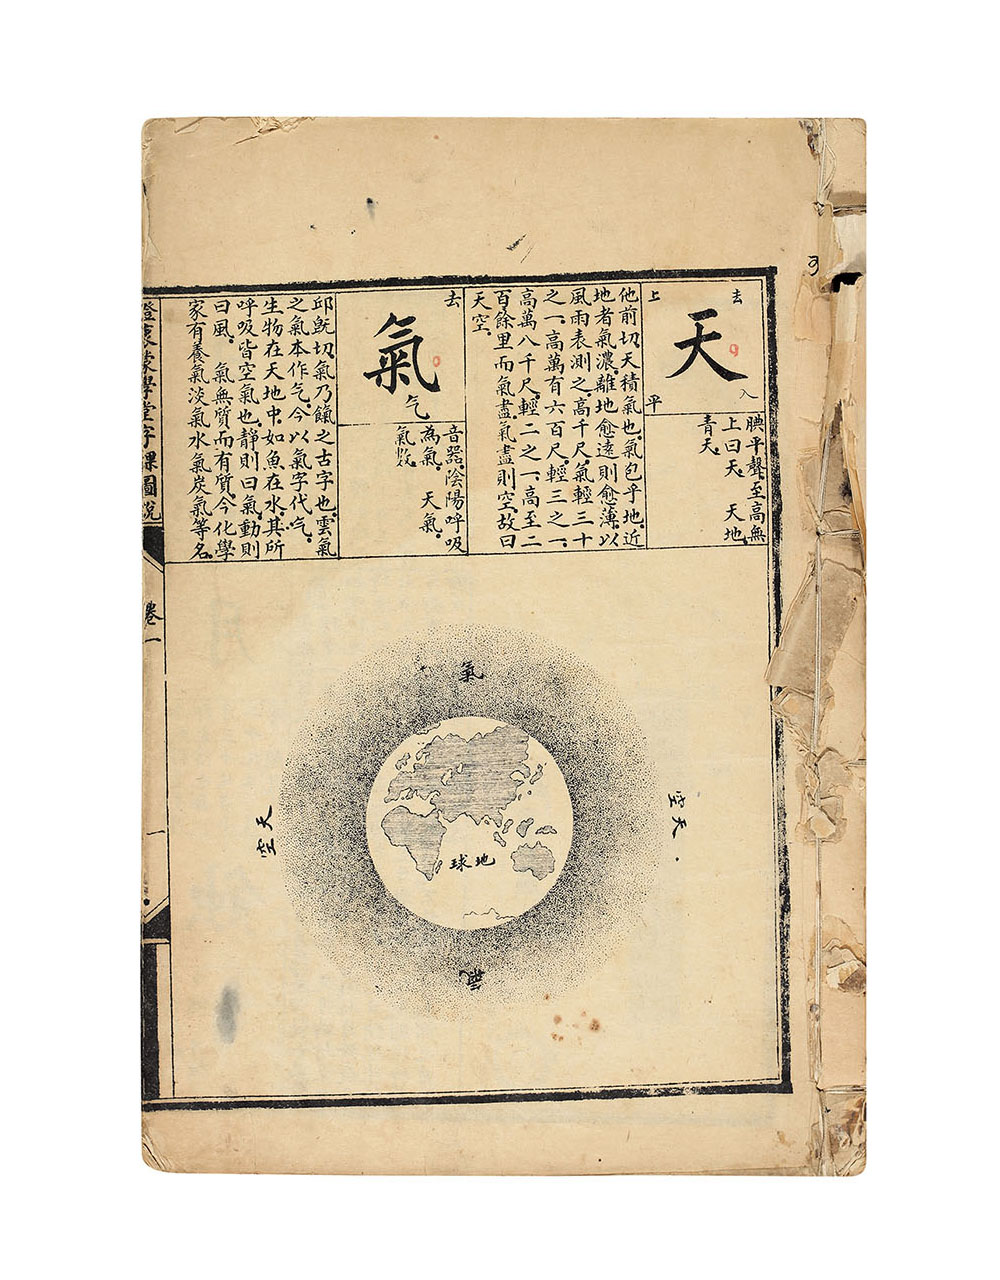 去
上
平
入
天
腆平聲至高無
上曰天 天地
青天
他前切天積氣也氣包乎地近
地者氣濃離地愈遠則愈薄以
風雨表測之高千尺氣輕三十
之一高萬有六百尺輕三之一
高萬八千尺輕二之一高至二
百餘里而氣盡氣盡則空故曰
天空
去
氣
气
音器陰陽呼吸
為氣 天氣
氣數
邱旣切氣乃餼之古字也雲氣
之氣本作气今以氣字代气
生物在天地中如魚在水其所
呼吸皆空氣也靜則曰氣動則
曰風 氣無質而有質今化學
家有養氣淡氣水氣炭氣等名
澄衷蒙學堂字課圖說
卷一
一
氣
天空
地球
天空
氣